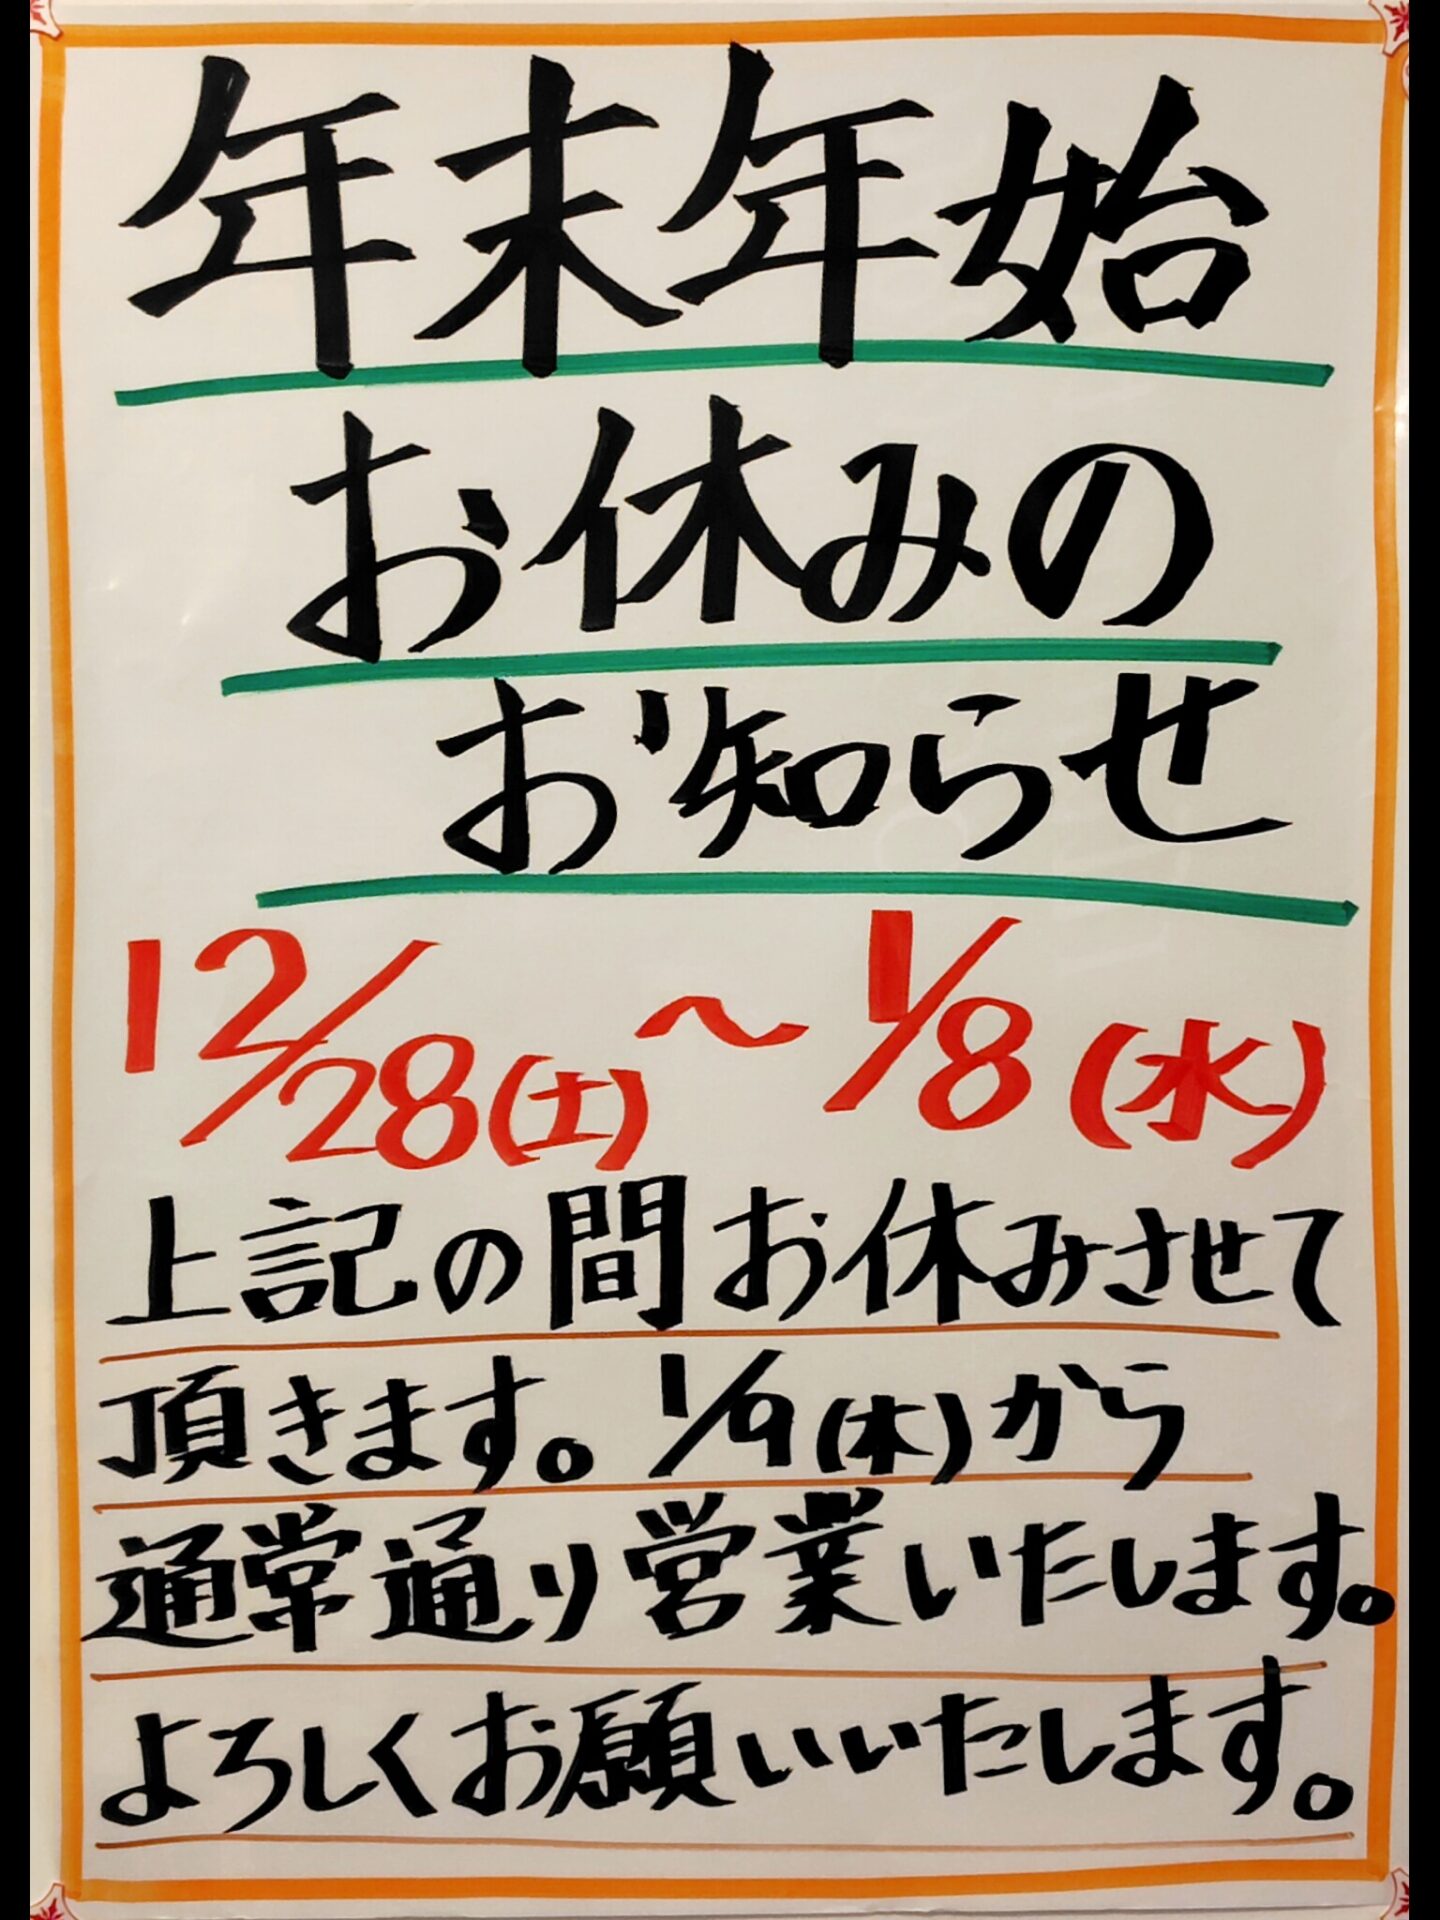 年末年始
お休みの
お知らせ
12/28(土)～1/8(水)
上記の間お休みさせて
頂きます。1/9(木)から
通常通り営業いたします。
よろしくお願いいたします。